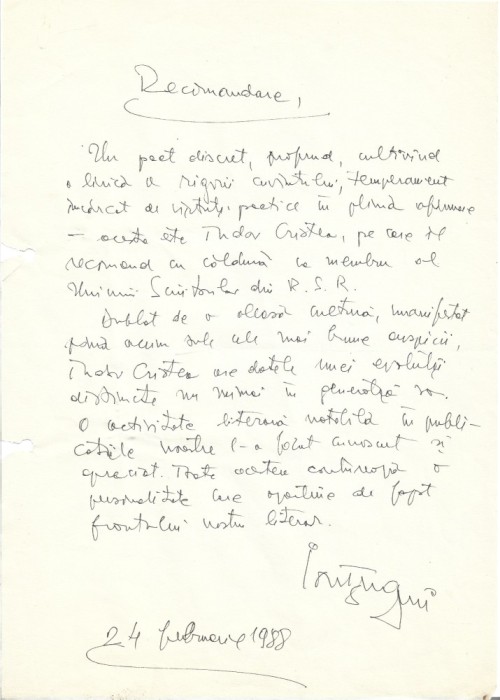 Recomandare,
Un poet discret, profund, cultivînd
o lirică a rigorii cuvîntului, temperament
încărcat de virtuți poetice în plină afirmare
— acesta este Tudor Cristea, pe care îl
recomand cu căldură ca membru al
Uniunii Scriitorilor din R. S. R.
Dublat de o aleasă cultură, manifestat
până acum sub cele mai bune auspicii,
Tudor Cristea are datele unei evoluții
distincte nu numai în generația sa.
O activitate literară notabilă în publi-
cațiile noastre l-a făcut cunoscut și
apreciat. Toate acestea configurează o
personalitate care aparține de fapt
frontului nostru literar.
24 februarie 1988